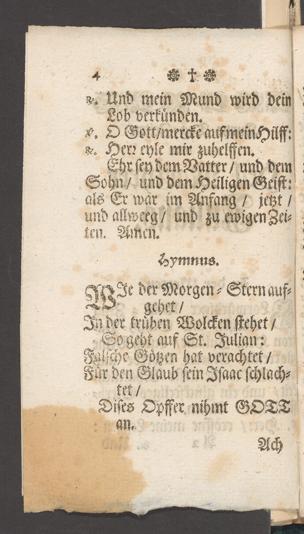 4 ❁ † ❁
℟. Und mein Mund wird dein
Lob verkünden.
℣. O Gott/mercke auf mein Hilff:
℟. Herr eyle mir zuhelffen.
Ehr sey dem Vatter / und dem
Sohn / und dem Heiligen Geist:
als Er war im Anfang / jetzt /
und allweeg / und zu ewigen Zei-
ten. Amen.
Hymnus.
WIe der Morgen-Stern auf-
gehet /
In der trüben Wolcken stehet /
So geht auf St. Julian:
Falsche Götzen hat verachtet /
Für den Glaub sein Isaac schlach-
tet /
Dises Opffer nihmt GOTT
an.
Ach